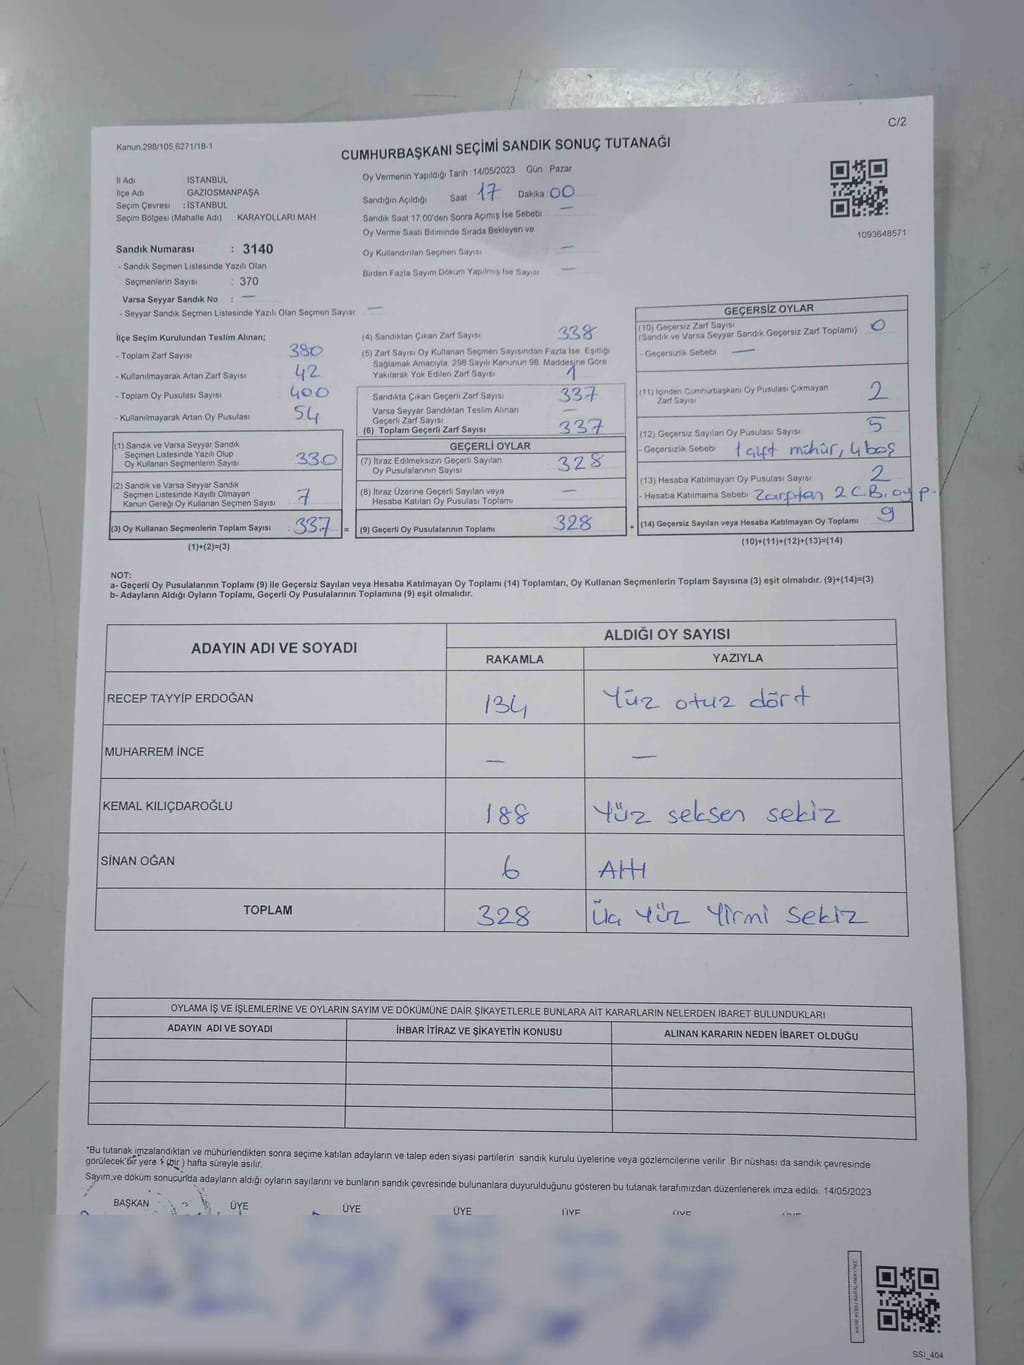 C/2
Kanun,298/105,6271/18-1
CUMHURBAŞKANI SEÇİMİ SANDIK SONUÇ TUTANAĞI
İl Adı İSTANBUL
İlçe Adı GAZİOSMANPAŞA
Seçim Çevresi : İSTANBUL
Seçim Bölgesi (Mahalle Adı) KARAYOLLARI MAH
Oy Vermenin Yapıldığı Tarih :14/05/2023 Gün Pazar
Sandığın Açıldığı Saat 17 Dakika 00
Sandık Saat 17.00'den Sonra Açımış İse Sebebi —
Oy Verme Saati Bitiminde Sırada Bekleyen ve
Oy Kullandırılan Seçmen Sayısı —
Birden Fazla Sayım Döküm Yapılmış İse Sayısı —
1093648571
Sandık Numarası : 3140
- Sandık Seçmen Listesinde Yazılı Olan
Seçmenlerin Sayısı : 370
Varsa Seyyar Sandık No : —
- Seyyar Sandık Seçmen Listesinde Yazılı Olan Seçmen Sayısı —
İlçe Seçim Kurulundan Teslim Alınan;
- Toplam Zarf Sayısı 380
- Kullanılmayarak Artan Zarf Sayısı 42
- Toplam Oy Pusulası Sayısı 400
- Kullanılmayarak Artan Oy Pusulası 54
(1) Sandık ve Varsa Seyyar Sandık
Seçmen Listesinde Yazılı Olup
Oy Kullanan Seçmenlerin Sayısı 330
(2) Sandık ve Varsa Seyyar Sandık
Seçmen Listesinde Kayıtlı Olmayan
Kanun Gereği Oy Kullanan Seçmen Sayısı 7
(3) Oy Kullanan Seçmenlerin Toplam Sayısı : 337 =
(1)+(2)=(3)
(4) Sandıktan Çıkan Zarf Sayısı 338
(5) Zarf Sayısı Oy Kullanan Seçmen Sayısından Fazla İse, Eşitliği
Sağlamak Amacıyla, 298 Sayılı Kanunun 98. Maddesine Göre
Yakılarak Yok Edilen Zarf Sayısı 1
Sandıkta Çıkan Geçerli Zarf Sayısı 337
Varsa Seyyar Sandıktan Teslim Alınan
Geçerli Zarf Sayısı —
(6) Toplam Geçerli Zarf Sayısı 337
GEÇERLİ OYLAR
(7) İtiraz Edilmeksizin Geçerli Sayılan
Oy Pusulalarının Sayısı 328
(8) İtiraz Üzerine Geçerli Sayılan veya
Hesaba Katılan Oy Pusulası Toplamı —
(9) Geçerli Oy Pusulalarının Toplamı 328 +
GEÇERSİZ OYLAR
(10) Geçersiz Zarf Sayısı
(Sandık ve Varsa Seyyar Sandık Geçersiz Zarf Toplamı) 0
- Geçersizlik Sebebi —
(11) İçinden Cumhurbaşkanı Oy Pusulası Çıkmayan
Zarf Sayısı 2
(12) Geçersiz Sayılan Oy Pusulası Sayısı 5
- Geçersizlik Sebebi 1 çift mühür, 4 boş
(13) Hesaba Katılmayan Oy Pusulası Sayısı 2
- Hesaba Katılmama Sebebi Zarftan 2 C.B. oy p.
(14) Geçersiz Sayılan veya Hesaba Katılmayan Oy Toplamı 9
(10)+(11)+(12)+(13)=(14)
NOT:
a- Geçerli Oy Pusulalarının Toplamı (9) ile Geçersiz Sayılan veya Hesaba Katılmayan Oy Toplamı (14) Toplamları, Oy Kullanan Seçmenlerin Toplam Sayısına (3) eşit olmalıdır. (9)+(14)=(3)
b- Adayların Aldığı Oyların Toplamı, Geçerli Oy Pusulalarının Toplamına (9) eşit olmalıdır.
ADAYIN ADI VE SOYADI ALDIĞI OY SAYISI
RAKAMLA YAZIYLA
RECEP TAYYİP ERDOĞAN 134 Yüz otuz dört
MUHARREM İNCE — —
KEMAL KILIÇDAROĞLU 188 Yüz seksen sekiz
SİNAN OĞAN 6 Altı
TOPLAM 328 Üç Yüz Yirmi Sekiz
OYLAMA İŞ VE İŞLEMLERİNE VE OYLARIN SAYIM VE DÖKÜMÜNE DAİR ŞİKAYETLERLE BUNLARA AİT KARARLARIN NELERDEN İBARET BULUNDUKLARI
ADAYIN ADI VE SOYADI İHBAR İTİRAZ VE ŞİKAYETİN KONUSU ALINAN KARARIN NEDEN İBARET OLDUĞU
*Bu tutanak imzalandıktan ve mühürlendikten sonra seçime katılan adayların ve talep eden siyasi partilerin sandık kurulu üyelerine veya gözlemcilerine verilir .Bir nüshası da sandık çevresinde
görülecek bir yere 1 (bir ) hafta süreyle asılır.
Sayım ve döküm sonucunda adayların aldığı oyların sayılarını ve bunların sandık çevresinde bulunanlara duyurulduğunu gösteren bu tutanak tarafımızdan düzenlenerek imza edildi. 14/05/2023
BAŞKAN ÜYE ÜYE ÜYE ÜYE ÜYE
SSİ_404